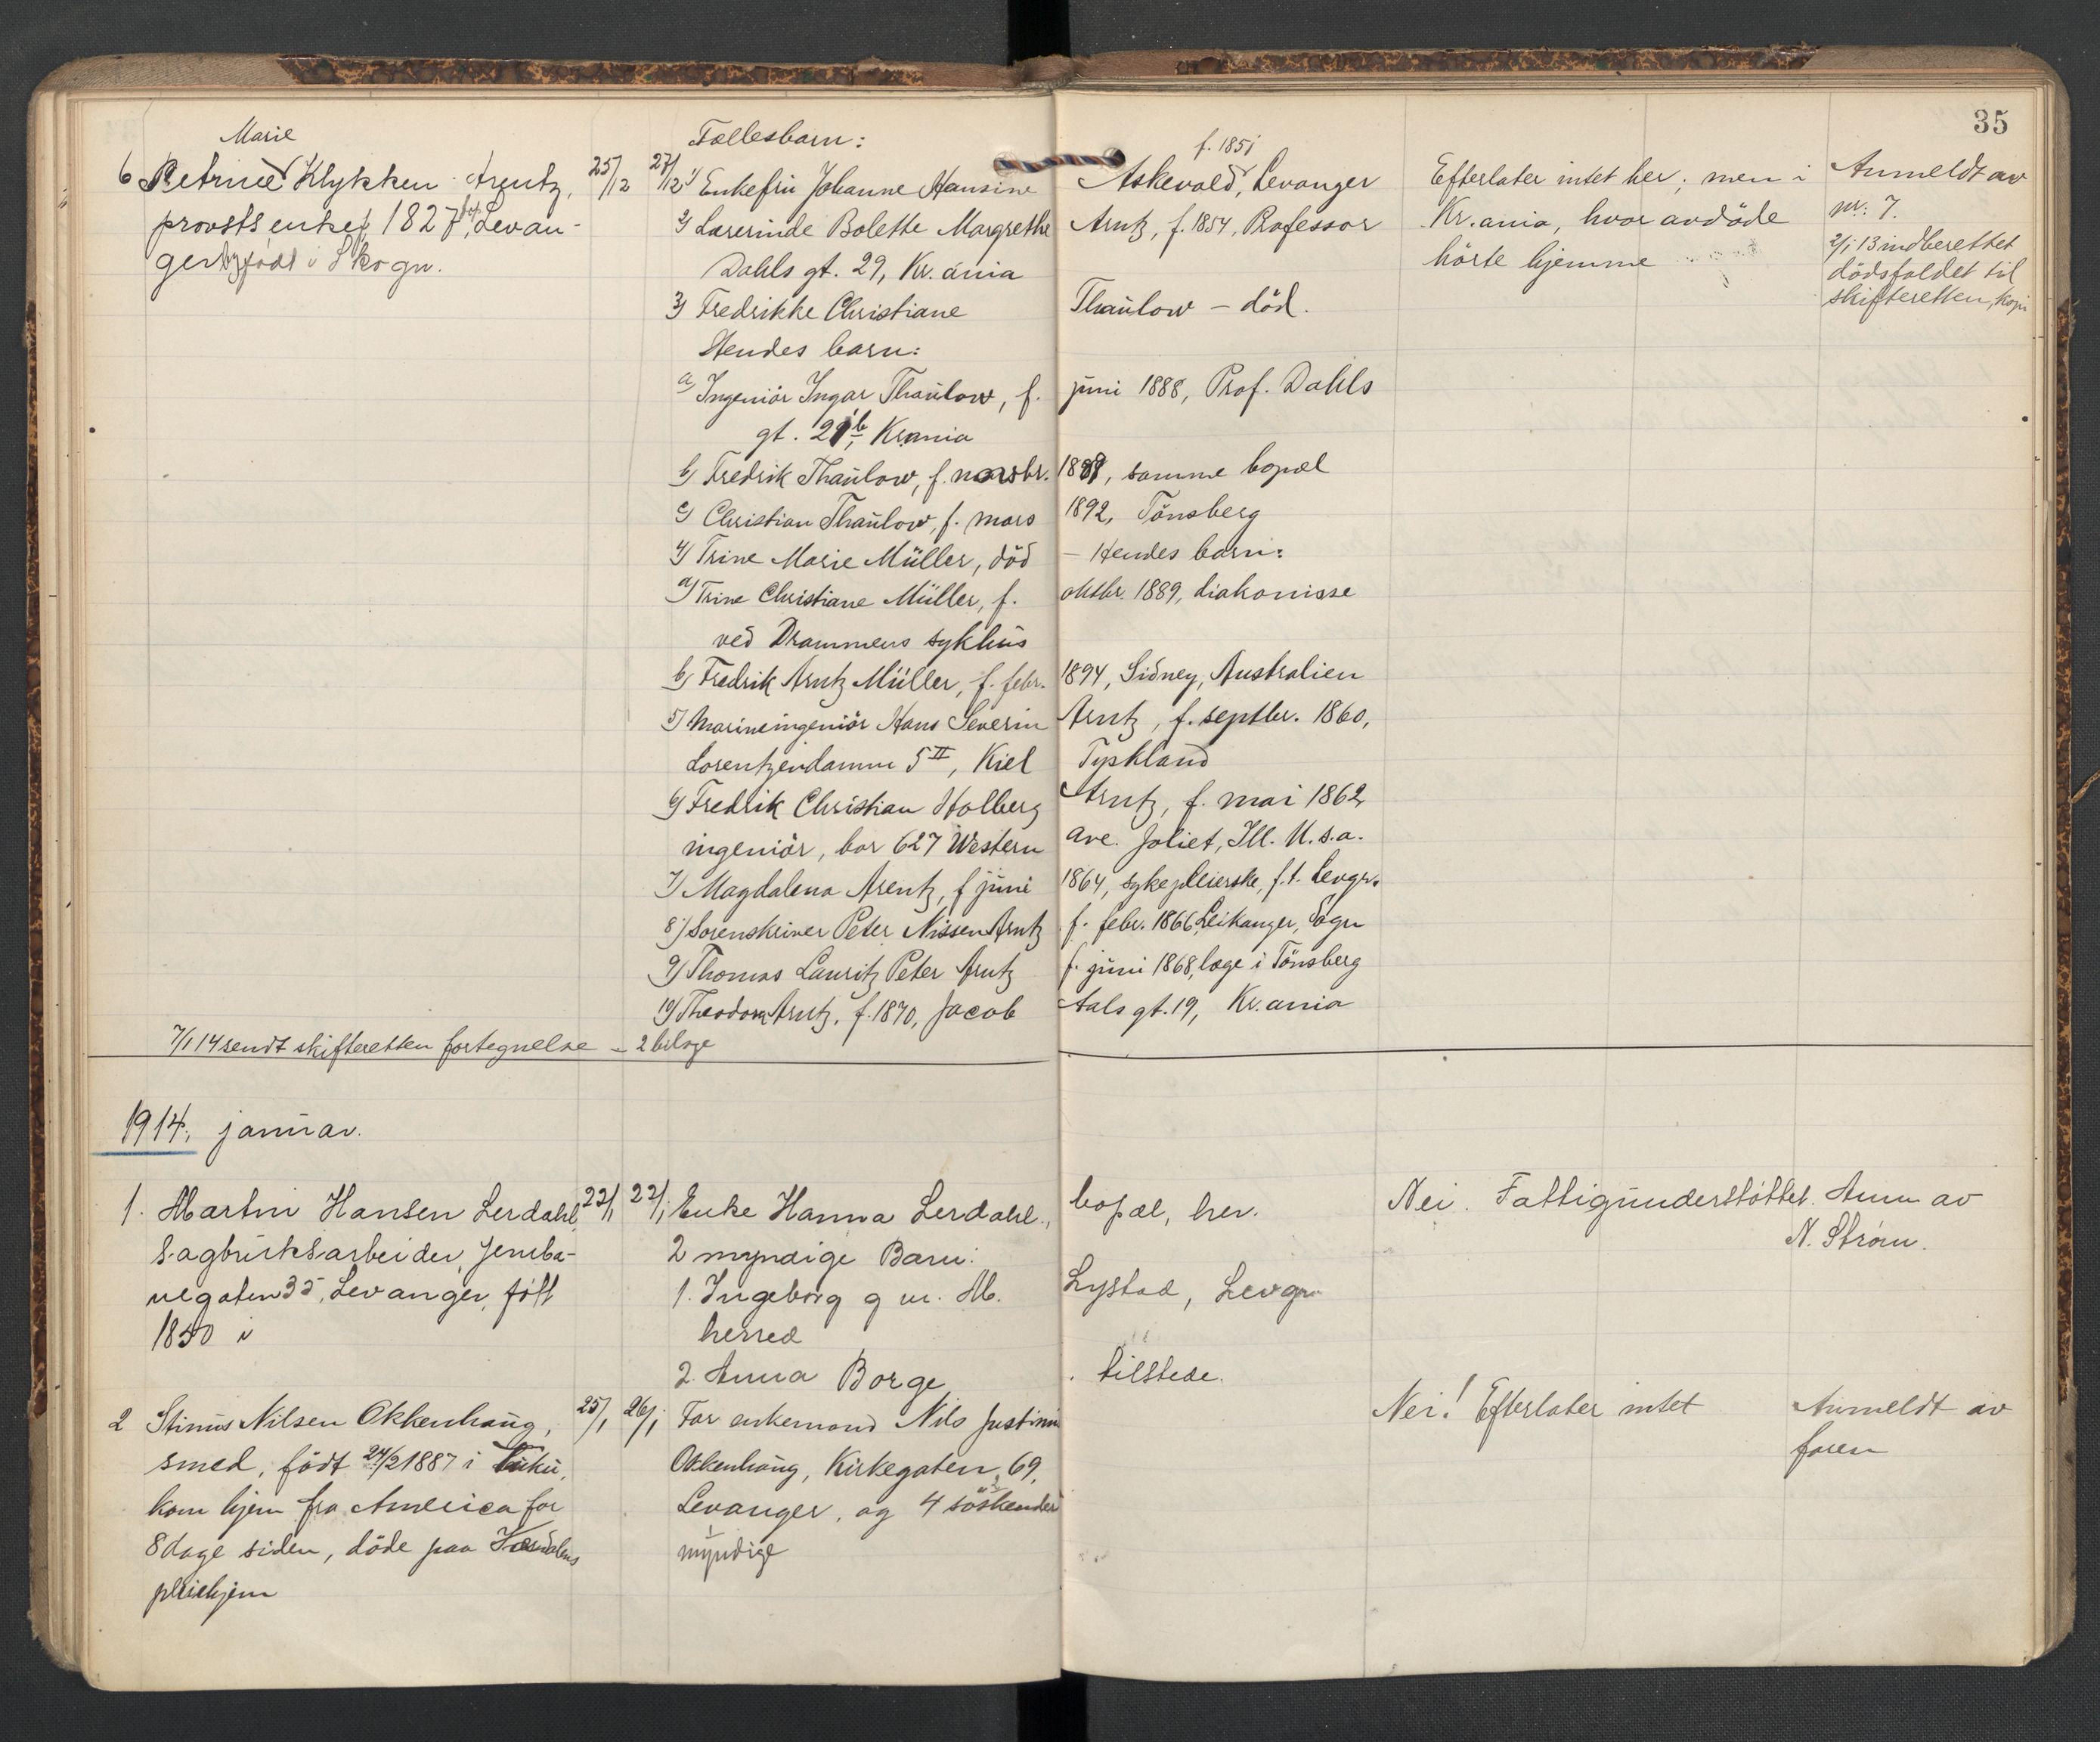 35
Marie
6 Petrine Klykken Arentz,
provsts enke, f. 1827, Levan-
ger by, født i Skogn.
25/12 27/12
Fællesbarn:
1) Enkefru Johanne Hansine Askevold, f. 1851 Levanger
2) Lærerinde Bolette Margrethe Arntz, f. 1854, Professor
Dahls gt. 29, Kr.ania
3) Fredrikke Christiane Thaulow – död.
Hendes barn:
a) Ingeniör Ingar Thaulow, f. juni 1888, Prof. Dahls
gt. 29 b, Kr.ania
b) Fredrik Thaulow, f. novbr. 1889, samme bopæl
c) Christian Thaulow, f. mars 1892, Tönsberg
4) Trine Marie Müller, död – Hendes barn:
a) Trine Christiane Müller, f. oktbr. 1889, diakonisse
ved Drammens sykhus
b) Fredrik Arntz Müller, f. febr. 1894, Sidney, Australien
5) Marineingeniör Hans Severin Arntz, f. septbr. 1860,
Lorentzendamm 5 II, Kiel Tyskland
6) Fredrik Christian Holberg Arntz, f. mai 1862,
ingeniör, bor 627 Western ave. Joliet, Ill. U.s.a.
7) Magdalena Arentz, f juni 1864, sykepleierske, f.t. Levgr.
8) Sorenskriver Peter Nissen Arntz f. febr. 1866 Leikanger, Sogn
9) Thomas Lauritz Peter Arntz f. juni 1868, læge i Tönsberg
10) Theodora Arntz, f. 1870, Jacob Aals gt. 19, Kr.ania
Efterlater intet her; men i
Kr.ania, hvor avdöde
hörte hjemme
Anmeldt av
nr. 7.
2/1 13 indberettet
dödsfaldet til
skifteretten, kopi
7/1 14 sendt skifteretten fortegnelse – 2 bilage
1914, januar.
1. Martin Hansen Lerdahl,
Sagbruksarbeider, Jernba-
negaten 35, Levanger, fött
1850 i
22/1 22/1
Enke Hanna Lerdahl, bopæl, her.
2 myndige Barn:
1. Ingeborg g m. M. Lystad, Levgr.
herred
2. Anna Borge tilstede.
Nei. Fattigunderstöttet. Anm av
N. Strøm.
2 Stinus Nilsen Okkenhaug,
smed, födt 24/2 1887 i
kom hjem fra America for
8 dage siden, döde paa Værdalens
pleiehjem
25/1 26/1
Far enkemand Nils Justinus
Okkenhaug, Kirkegaten 69,
Levanger, og 4 söskender
myndige
Nei! Efterlater intet
Anmeldt av
faren